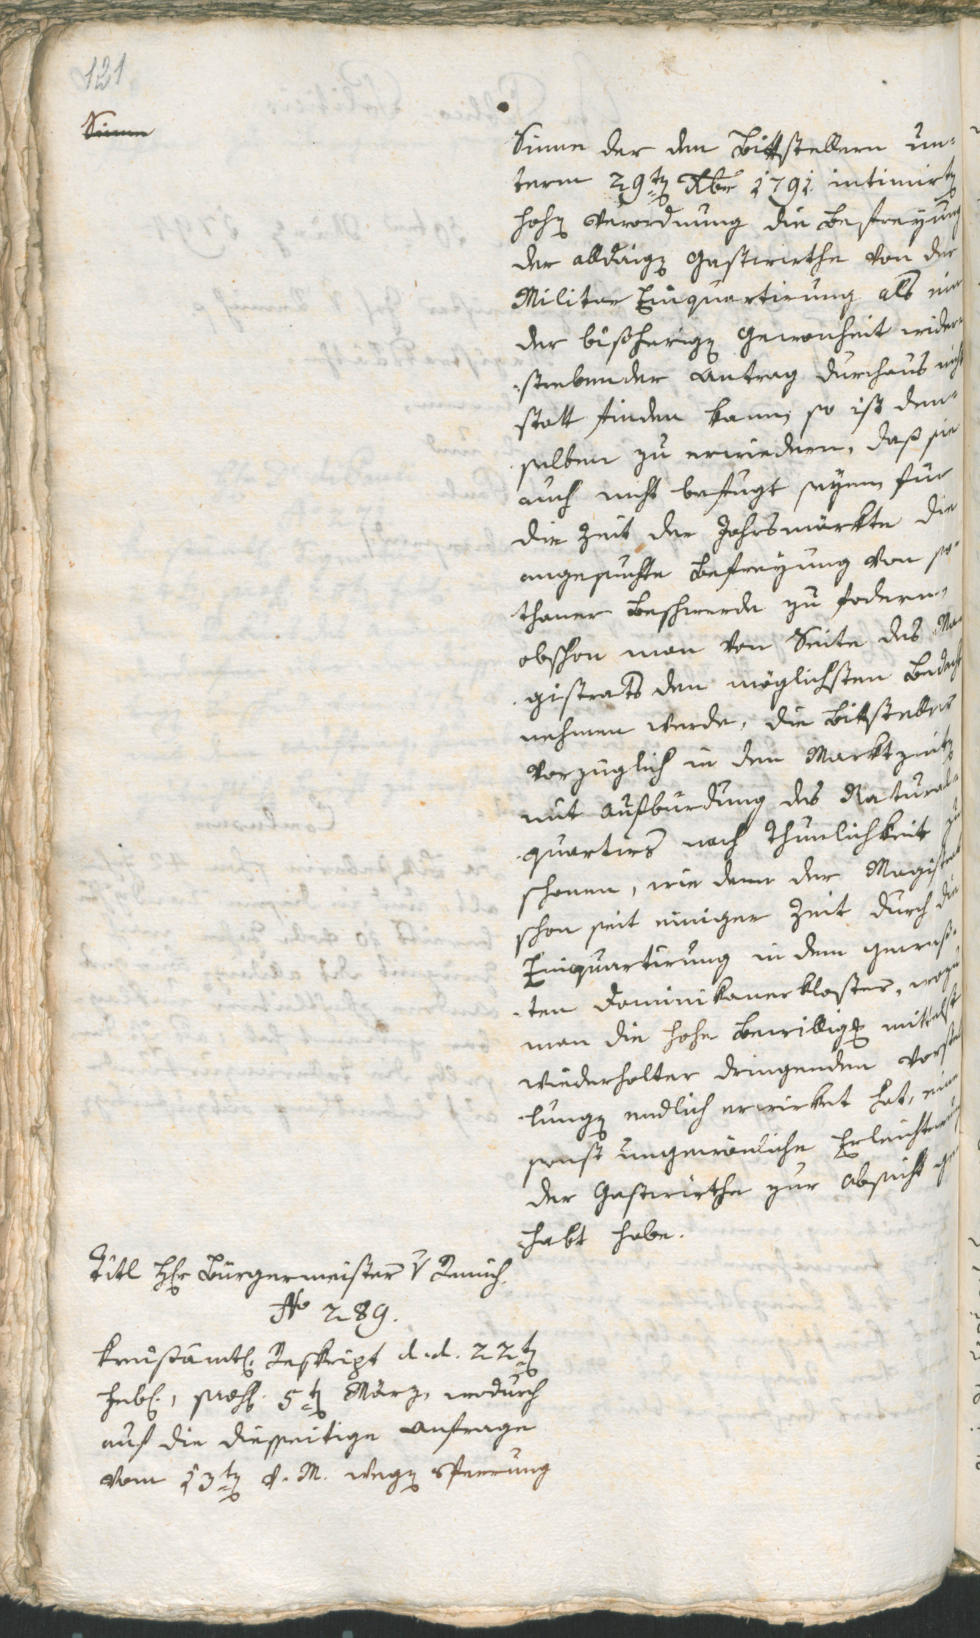 121
Sinne
Sinne der den Bittstellern un-
term 29ten Xber 1791 intimirten
hohen Verordnung die Befreyung
der alldaigen Gastwirthe von der
Militar Einquartirung als ein
der bißherigen Gewonheit wider-
strebender Antrag durchaus nicht
statt finden kann, so ist den-
selben zu erwiedern, daß sie
auch nicht befugt seyen, für
die Zeit der Jahrsmärkte die
angesuchte Befreyung von so-
thaner Beschwerde zu fodern,
obschon man von Seite des Ma-
gistrats den möglichsten Bedacht
nehmen werde, die Bittsteller
vorzüglich in den Marktzeiten
mit Aufbürdung des Natural-
quartirs nach Thunlichkeit zu
schonen, wie dann der Magistrat
schon seit einiger Zeit durch die
Einquartirung in dem gewes-
ten Dominikanerkloster, wozu
man die hohe Bewilligung mittelst
wiederholter dringenden Vorstel-
lungen endlich erwirket hat, eine
sonst ungewönliche Erleichterung
der Gastwirthe zur Absicht ge-
habt habe.
Titl Hr Bürgermeister v
No 289.
Kreisämtl. Reskript d.d. 22ten
Hebr., praes. 5ten März, wodurch
auf die diesseitige Anfrage
vom 13ten v. M. wegen Sperrung